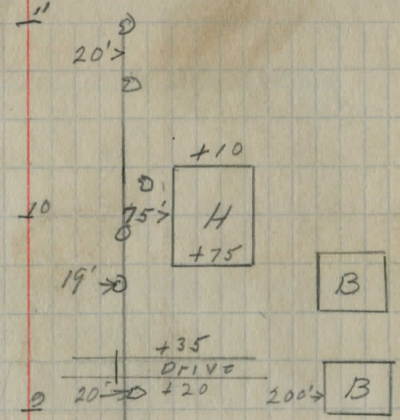 11
20'>
+10
10
75'>
H
+75
19'→
B
+35
Drive
9
20'→
+20
200'→
B